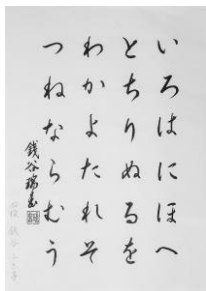 いろはにほへ
とちりぬるを
わかよたれそ
つねならむう
銭谷瑞
銭谷